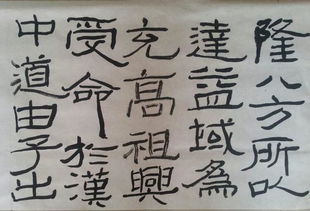 隆八方所以
達益域為
充高祖興
受命於漢
中道由子出